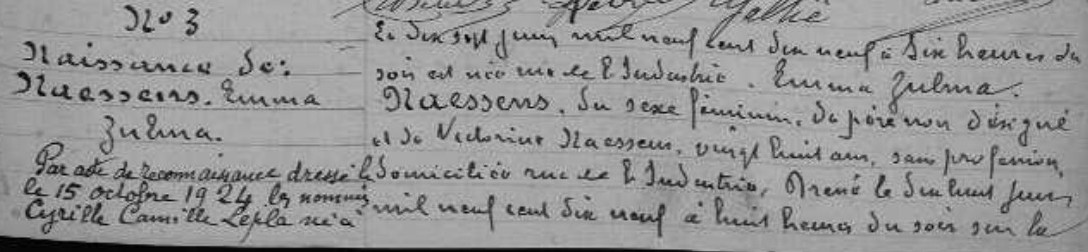 No 3
Naissance de:
Naessens. Emma
Zulma.
Par acte de reconnaissance dressé le
le 15 octobre 1924 les nommés
Cyrille Camille Lepla né à
Le dix sept juin mil neuf cent dix neuf à dix heures du
soir est née rue de l'Industrie. Emma Zulma.
Naessens. du sexe féminin. de père non désigné
et de Victorine Naessens, vingt huit ans, sans profession,
domiciliée rue de l'Industrie. Dressé le dix huit juin
mil neuf cent dix neuf à huit heures du soir sur la